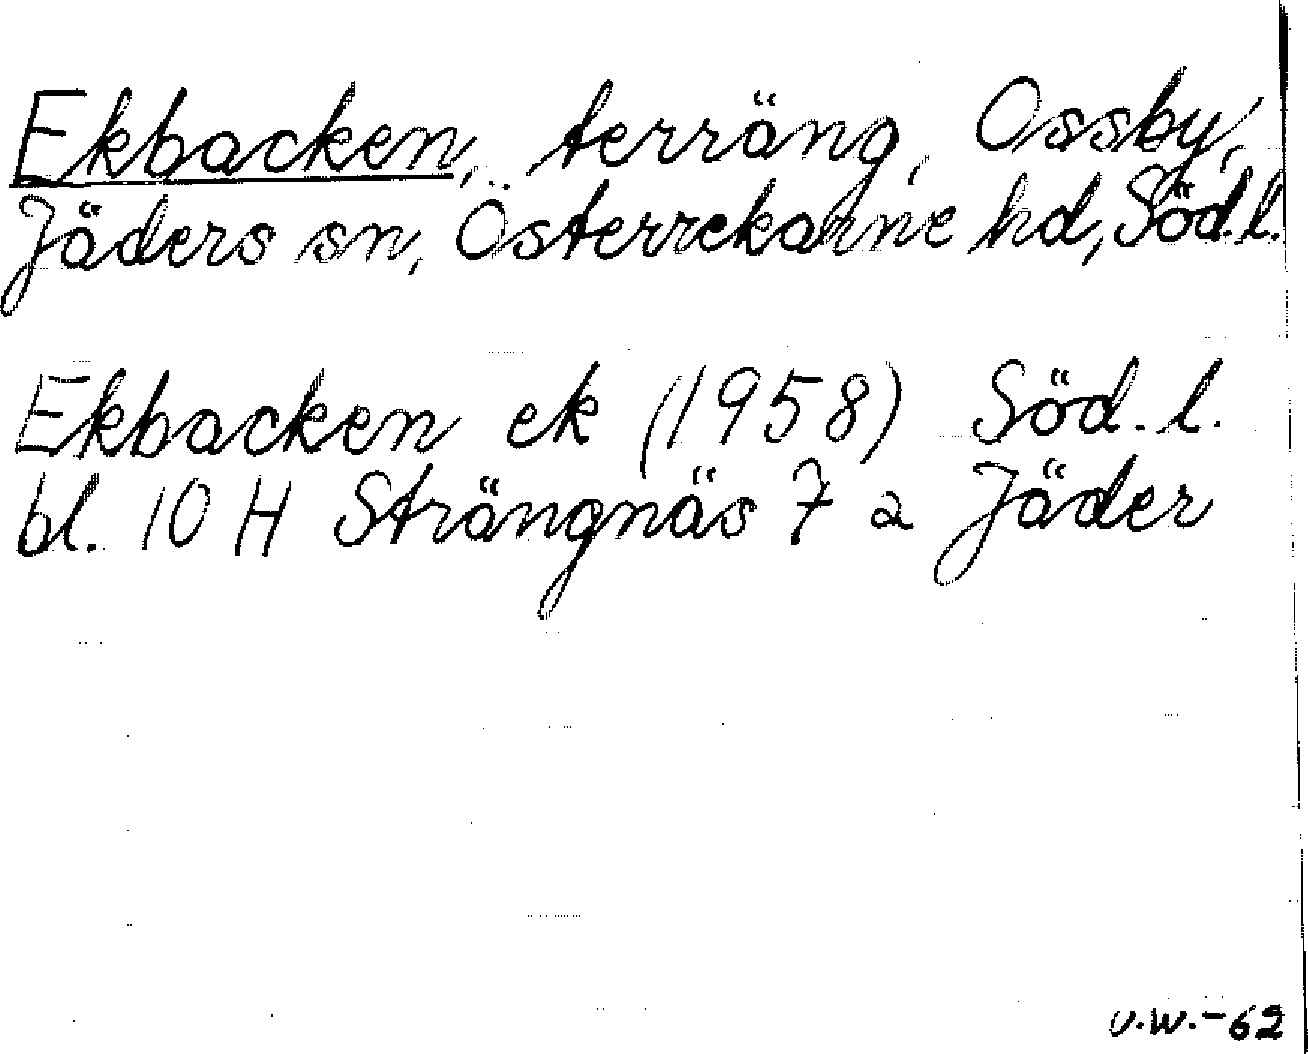 Ekbacken, terräng, Ossby,
Jäders sn, Österrekarne hd, Söd.l.
Ekbacken ek (1958) Söd. l.
bl. 10 H Strängnäs 7 a Jäder
U.W.-62